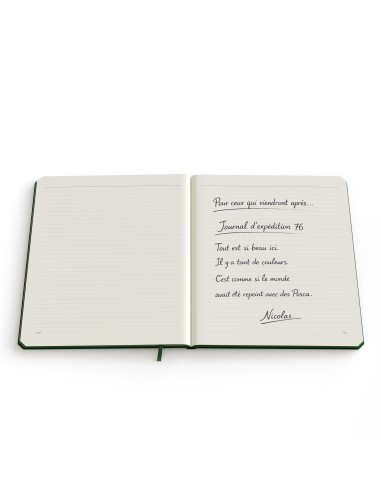 Pour ceux qui viendront après...
Journal d'expédition 76
Tout est si beau ici.
Il y a tant de couleurs.
C'est comme si le monde
avait été repeint avec des Posca.
Nicolas